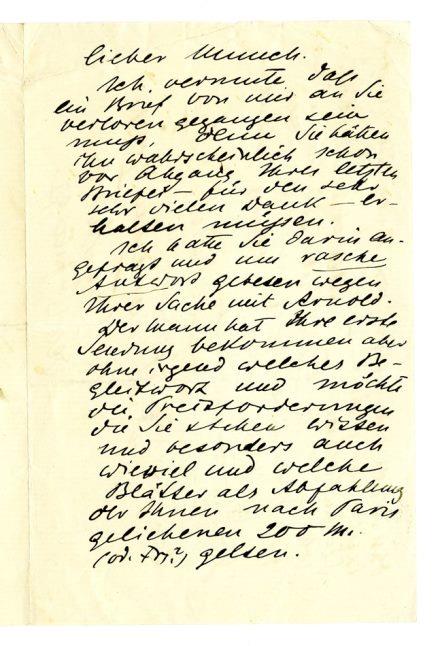 lieber Munch.
Ich vermute dass
ein Brief von mir an Sie
verloren gegangen sein
muß, denn Sie hätten
ihn wahrscheinlich schon
vor Abgang Ihres letzten
Briefes – für den sehr
sehr vielen Dank – er-
halten müssen.
Ich hatte Sie darin an-
gefragt und um rasche
Antwort gebeten wegen
Ihrer Sache mit Arnold.
Der Mann hat Ihre erste
Sendung bekommen aber
ohne irgend welches Be-
gleitwort und möchte
die Preisforderungen
die Sie stellen wissen
und besonders auch
wieviel und welche
Blätter als Abzahlung
der Ihnen nach Paris
geliehenen 200 M.
(od. Frs?) gelten.